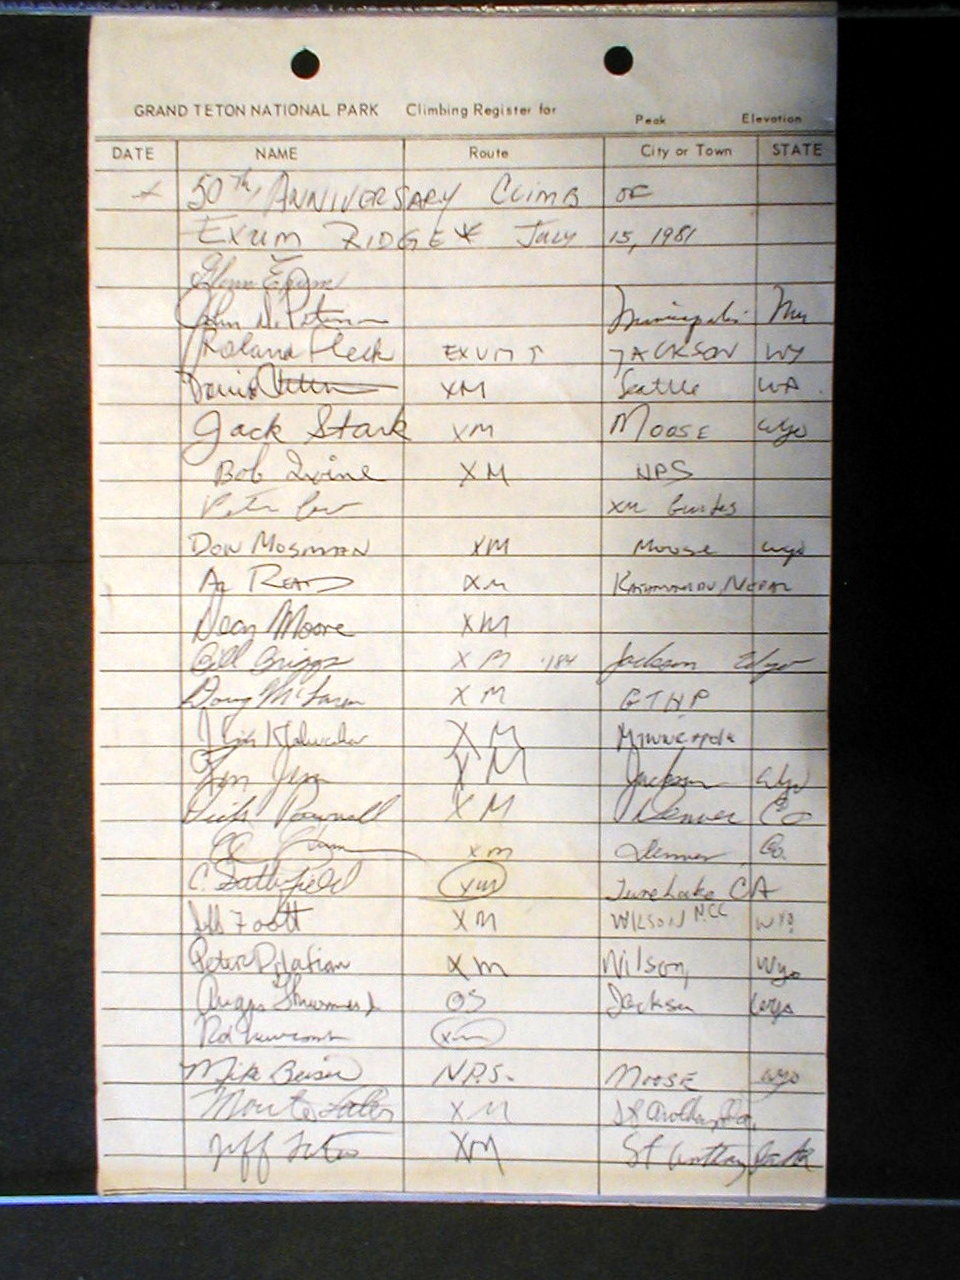 GRAND TETON NATIONAL PARK Climbing Register for Peak Elevation
DATE NAME Route City or Town STATE
50th ANNIVERSARY CLIMB OF
EXUM RIDGE * July 15, 1981
Glenn Exum
John D.
Roland Fleck EXUM JACKSON WY
David XM Seattle WA
Jack Stark XM MOOSE Wyo
Bob Irvine XM NPS
Peter XM Guides
DON MOSMAN XM Moose Wyo
AL READ XM KATHMANDU, NEPAL
Dean Moore XM
Bill Briggs XM Jackson Wyo
Doug McLaren XM GTNP
XM
XM Jackson Wyo
Dick Pownall XM Denver Co
XM Denver Co.
C. Satterfield XM June Lake CA
Jeff Foott XM WILSON WYO
Peter Pilafian XM Wilson, Wyo
OS Jackson Wyo
Rod Newcomb XM
Mike Beiser N.P.S. MOOSE Wyo
XM
Jeff XM St Anthony